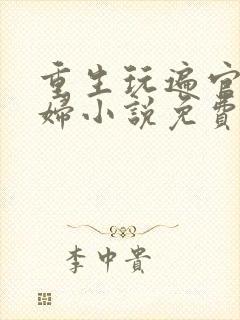 重生玩遍官
婦小說免費
李中貴